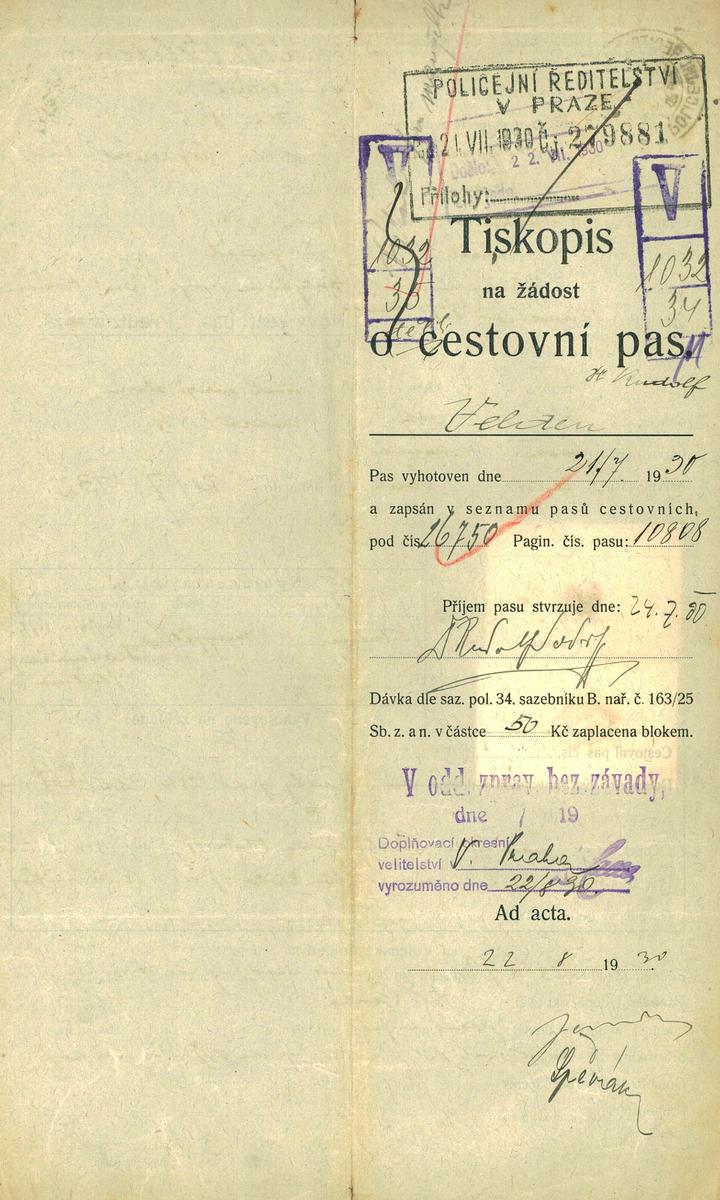 POLICEJNÍ ŘEDITELSTVÍ
V PRAZE
21. VII. 1930 Č. j. 29881
22. VII. 1930
Přílohy:
V
V
1032
1032
34
Tiskopis
na žádost
o cestovní pas.
Rudolf
Pas vyhotoven dne 21/7. 1930
a zapsán v seznamu pasů cestovních,
pod čís. 26750 Pagin. čís. pasu: 10808
Příjem pasu stvrzuje dne: 24.7.30
Dávka dle saz. pol. 34. sazebníku B. nař. č. 163/25
Sb. z. a n. v částce 50 Kč zaplacena blokem.
V odd. zpráv. bez závady,
dne / 19
Doplňovací okresní
velitelství v Praha
vyrozuměno dne 22/8 30.
Ad acta.
22 8 1930.